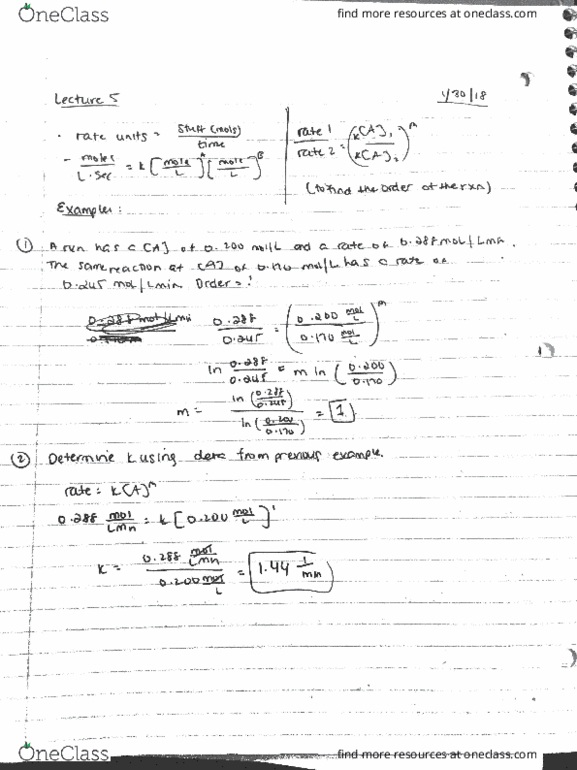 OneClass
find more resources at oneclass.com
Lecture 5
1/30/18
· rate units = Stuff (mols) / time
- moles / L · sec = k [mole / L]^A [mole / L]^B
rate 1 / rate 2 = (k[A]1 / k[A]2)^m
(to find the order of the rxn)
Examples:
① A run has a [A] of 0.200 mol/L and a rate of 0.288 mol/Lmn.
The same reaction at [A] of 0.170 mol/L has a rate of
0.245 mol/Lmin Order = ?
0.288 / 0.245 = (0.200 mol/L / 0.170 mol/L)^m
ln 0.288 / 0.245 = m ln (0.200 / 0.170)
m = ln (0.288 / 0.245) / ln (0.200 / 0.170) = 1
② Determine k using data from previous example.
rate = k[A]^m
0.288 mol / Lmn = k [0.200 mol / L]^1
k = 0.288 mol/Lmn / 0.200 mol/L = 1.44 1/mn
OneClass
find more resources at oneclass.com